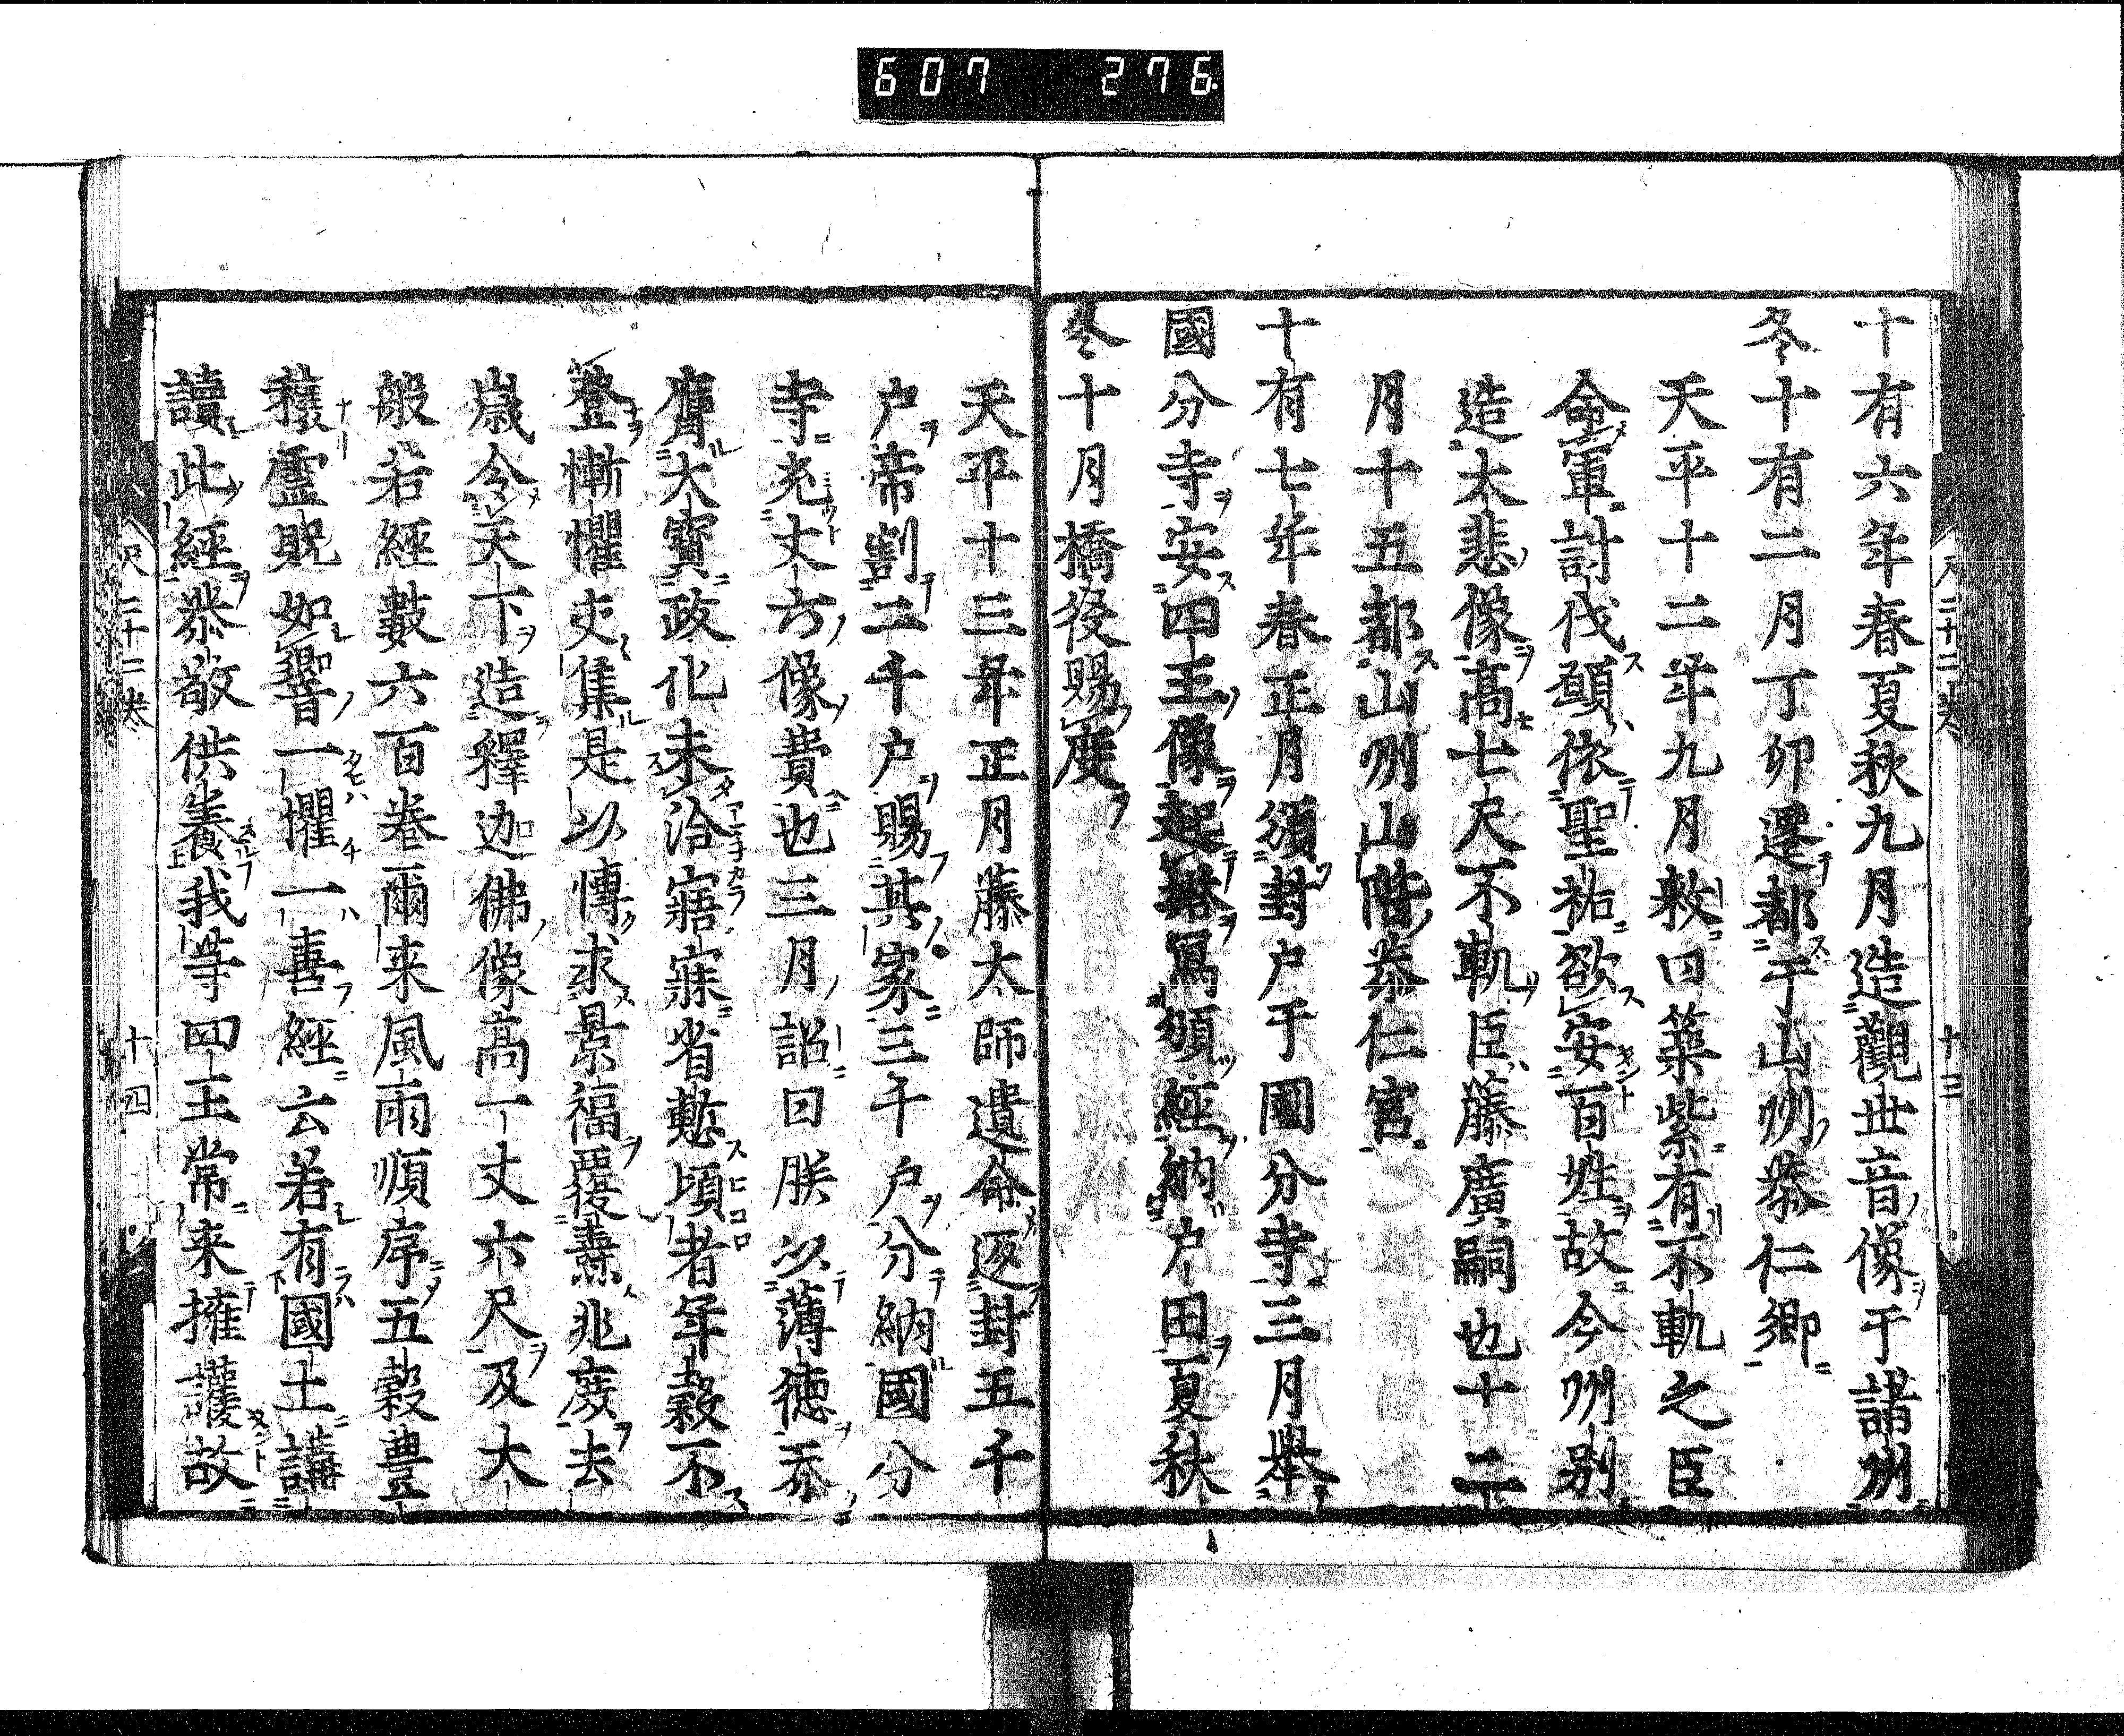 607 276
尺二十二巻 十三
十有六年春夏秋九月造觀世音像于諸州
冬十有二月丁卯遷都于山州恭仁郷
天平十二年九月敕曰築紫有不軌之臣
命軍討伐願依聖祐欲安百姓故今州別
造大悲像高七尺不軌臣藤廣嗣也十二
月十五都山州山階恭仁宮
十有七年春正月頒封戸于國分寺三月舉
國分寺安四王像起塔寫頒經納戸田夏秋
冬十月橋役賜度
天平十三年正月藤太師遺命返封五千
戸帝割二千戸賜其家三千戸分納國分
寺充丈六像費也三月詔曰朕以薄徳忝
膺大寶政化未洽寤寐省慙頃者年穀不
登慚懼交集是以慱求景福覆燾兆庶去
歳令天下造釋迦佛像高一丈六尺及大
般若經數六百巻爾来風雨順序五穀豊
穰靈貺如響一懼一喜經云若有國土講
讀此經恭敬供養我等四王常来擁護故
尺二十二巻 十四